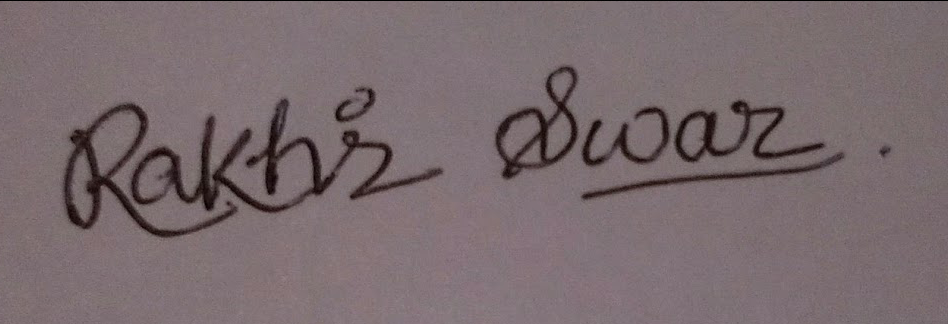 Rakhi Swar.